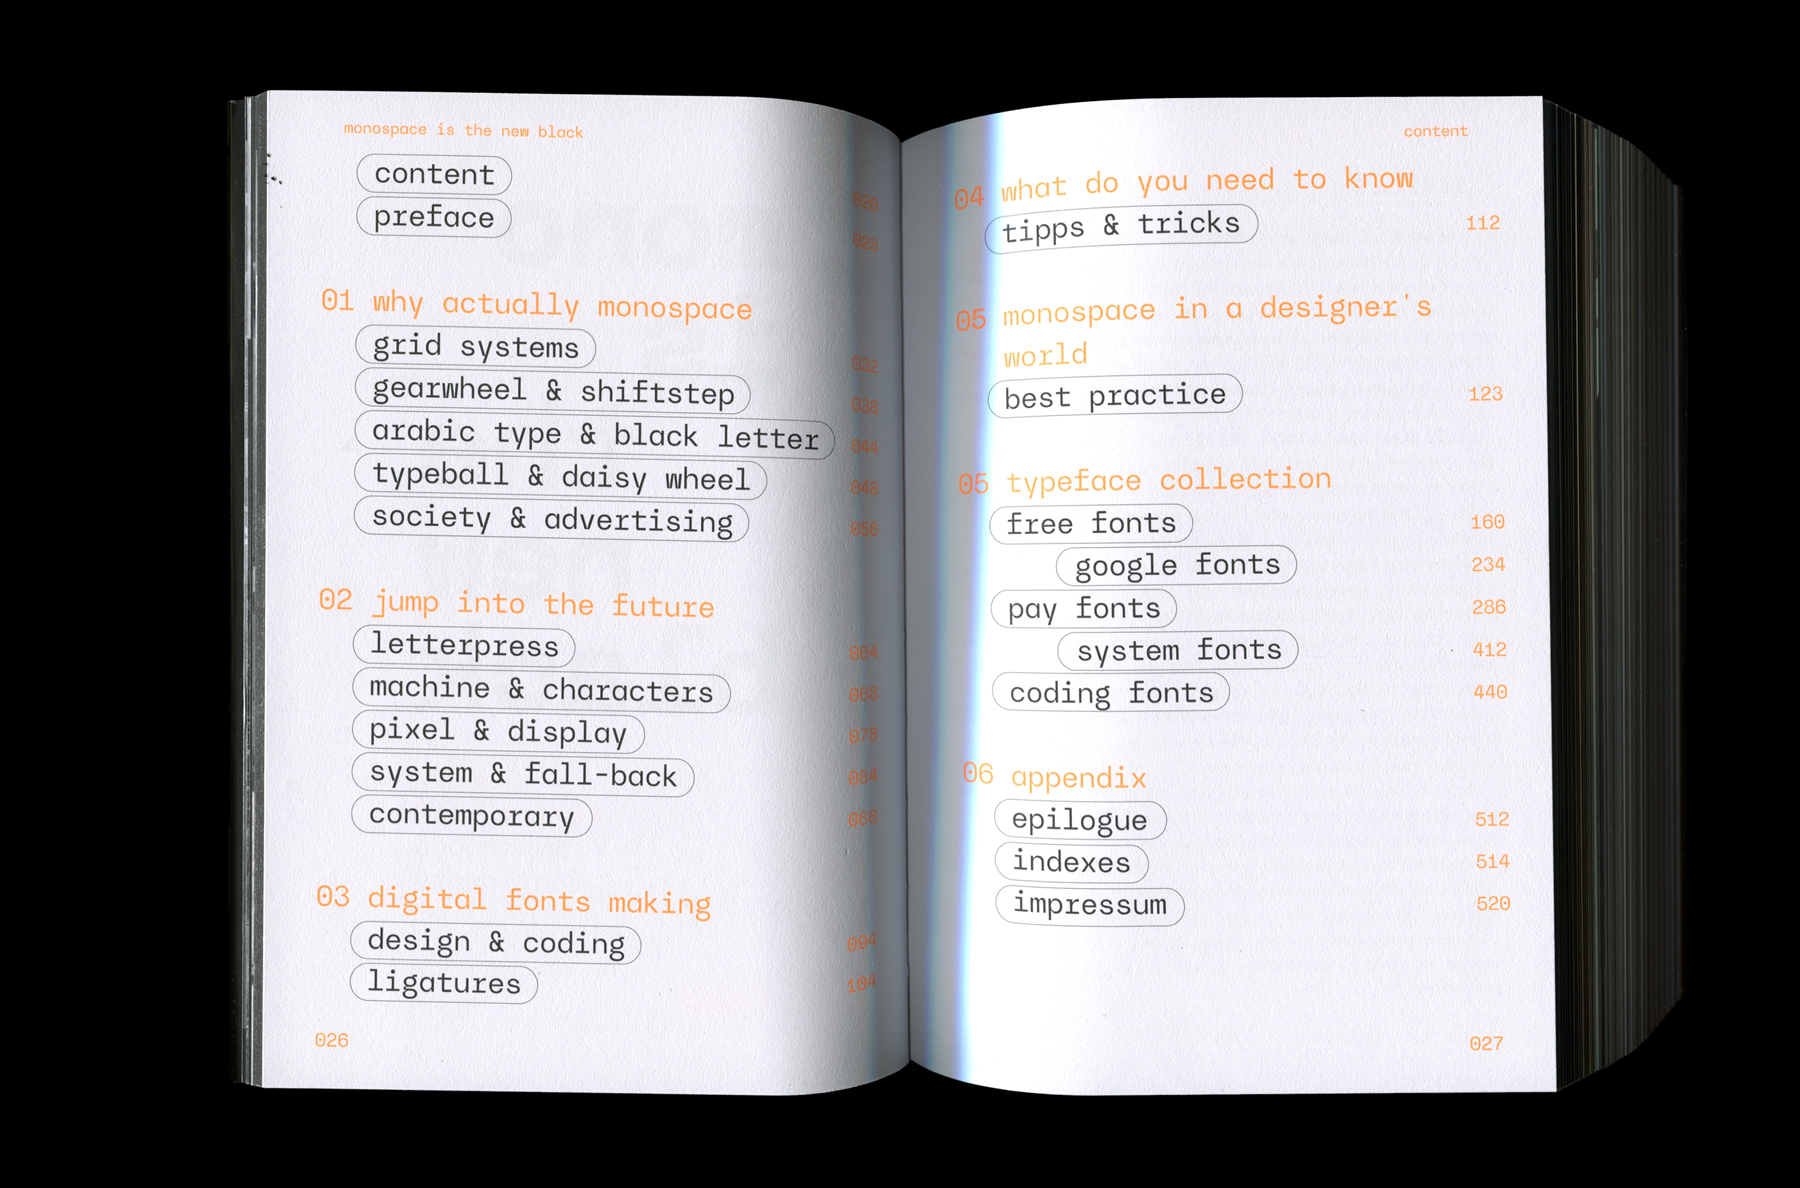 monospace is the new black
content 026
preface 028
01 why actually monospace
grid systems 032
gearwheel & shiftstep 038
arabic type & black letter 044
typeball & daisy wheel 048
society & advertising 056
02 jump into the future
letterpress 064
machine & characters
pixel & display 078
system & fall-back 084
contemporary 088
03 digital fonts making
design & coding 094
ligatures 104
026
content
04 what do you need to know
tipps & tricks 112
05 monospace in a designer's
world
best practice 123
05 typeface collection
free fonts 160
google fonts 234
pay fonts 286
system fonts 412
coding fonts 440
06 appendix
epilogue 512
indexes 514
impressum 520
027